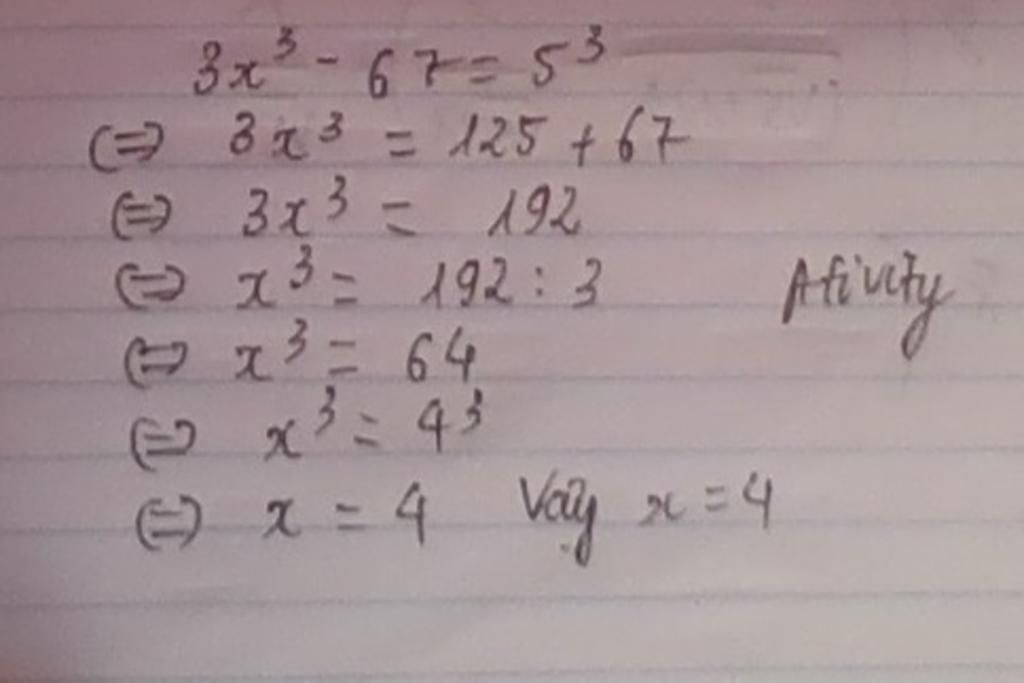 3x³ - 67 = 5³
(=) 3x³ = 125 + 67
(=) 3x³ = 192
(=) x³ = 192 : 3
Afivity
(=) x³ = 64
(=) x³ = 4³
(=) x = 4 Vậy x = 4